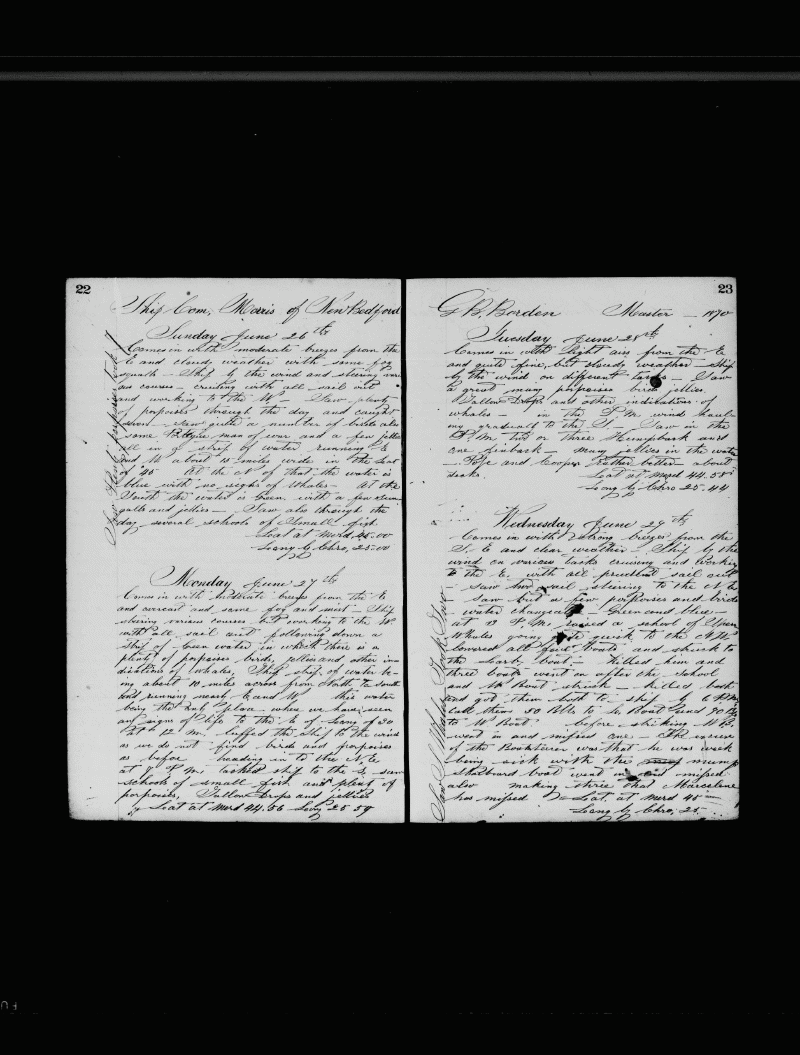 22
Ship Com, Morris of New Bedford
Sunday June 26th
Comes in with moderate breezes from the
E and cloudy weather with some fog
squalls - Ship by the wind and steering vari
ous courses - cruising with all sail out
and working to the W. - Saw plenty
of porpoises through the day and caught
seven - Saw quite a number of birds also
some Portugee man of war and a few jellies
all in a strip of water running E
and W about 10 miles wide in the Lat
of 45 At the N of that the water is
blue with no signs of Whales - At the
South the water is Green with a few
gulls and jellies - Saw also through the
day several schools of Small fish
Lat at Merd 45.00
Long by Chro, 25.00
Monday June 27th
Comes in with moderate breezes from the E
and overcast and some fog and mist - Ship
steering various courses but working to the W
with all sail out following down a
strip of Green water in which there is a
plenty of porpoises birds, jellies and other in-
dications of whales, This strip of water be-
ing about 10 miles across from North to South
and running nearly E and W this water
being the only place where we have seen
any signs of life to the E of Long of 30
At 12 M, luffed the Ship to the wind
as we do not find birds and porpoises
as before heading in to the N.E
at 7 P.M. tacked ship to the S, saw
schools of small fish and plenty of
porpoises, Tallow Drops and jellies
Lat at Merd 44.56 Long 25 59
23
G B, Borden Master - 1870
Tuesday June 28th
Comes in with light airs from the E
and quite fine, but cloudy weather - Ship
by the wind on different tacks - Saw
a great many porpoises birds jellies
Tallow Drops and other indications of
whales - in the P.M. wind haul-
ing gradually to the S - Saw in the
P.M. two or three Humpback and
one finback - many jellies in the water
- Pope and Cooper rather better about
decks. Lat at Merd 44.58
Long by Chro 25.44
Wednesday June 29th
Comes in with strong breezes from the
S. E and clear weather - Ship by the
wind on various tacks cruising and working
to the E. with all prudent sail out
- Saw two sail steering to the N E
- Saw but a few porpoises and birds
- water changeable - Green and blue -
at P.M, raised a school of Sperm
Whales going quick to the N.W.
lowered all four boats and struck to
the Larb boat, - Killed him and
three boats went on after the School
and W Boat struck - killed both
and got them both to ship by 6 P.M.
call them 50 Bbls to L. Boat and 90 Bbls
to W Boat before striking W B,
went in and missed one - The excuse
of the Boatsteerer was that he was weak
being sick with the mumps
Starboard boat went in and missed
also making three that Marceline
has missed Lat. at Merd 45
Long by Chro, 25
Saw S. Whales Took Two